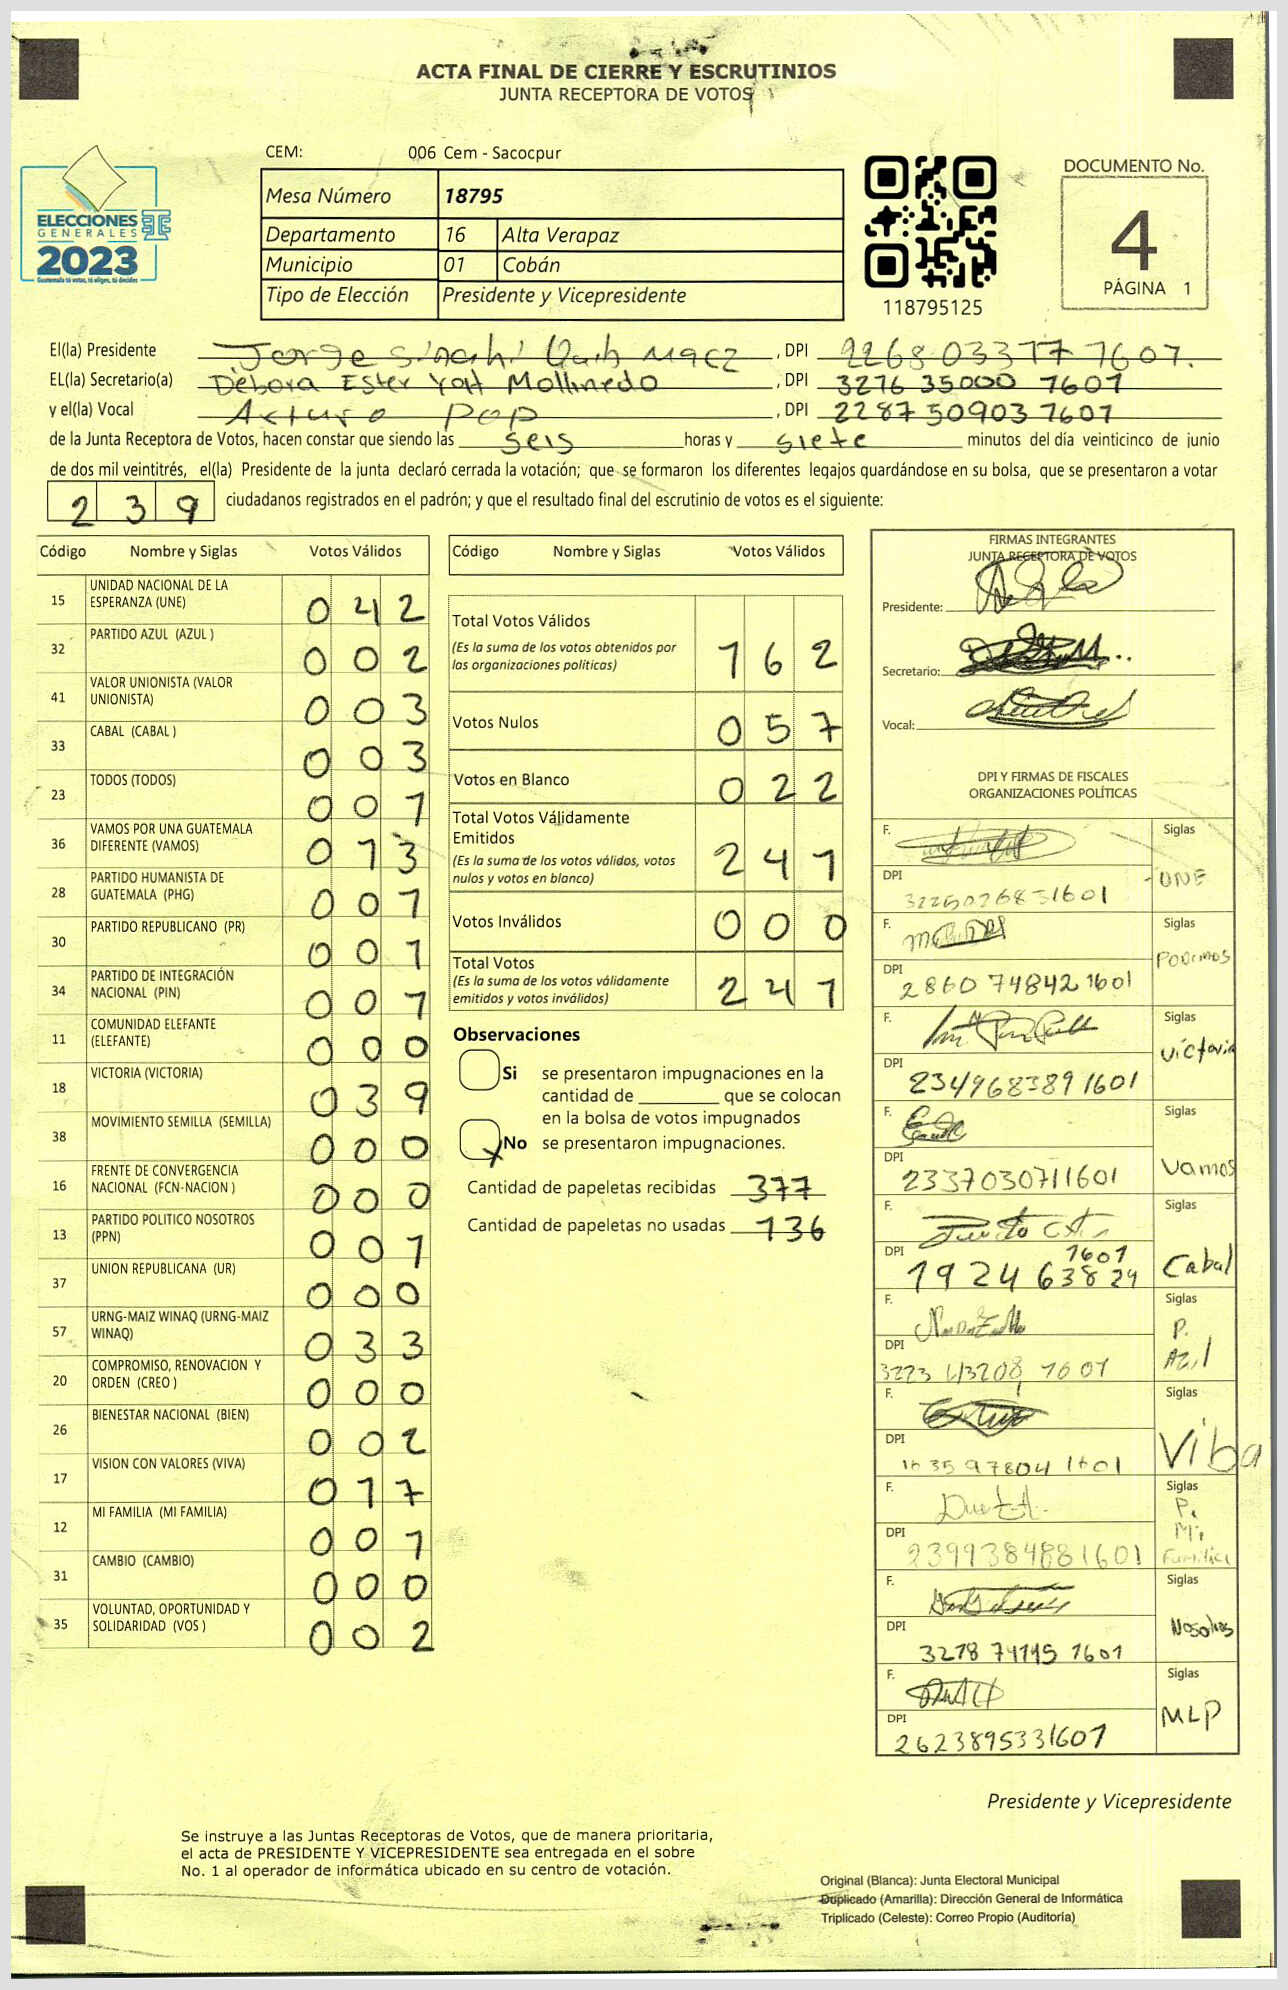 ACTA FINAL DE CIERRE Y ESCRUTINIOS
JUNTA RECEPTORA DE VOTOS
CEM: 006 Cem - Sacocpur
ELECCIONES
GENERALES
2023
Guatemala tú votas, tú eliges, tú decides
Mesa Número 18795
Departamento 16 Alta Verapaz
Municipio 01 Cobán
Tipo de Elección Presidente y Vicepresidente
118795125
DOCUMENTO No.
4
PÁGINA 1
El(la) Presidente Jorge , DPI 2268 03377 1607.
EL(la) Secretario(a) Débora Ester Yat Mollinedo , DPI 3276 35000 1601
y el(la) Vocal Arturo Pop , DPI 2287 50903 1607
de la Junta Receptora de Votos, hacen constar que siendo las seis horas y siete minutos del día veinticinco de junio
de dos mil veintitrés, el(la) Presidente de la junta declaró cerrada la votación; que se formaron los diferentes legajos quardándose en su bolsa, que se presentaron a votar
239 ciudadanos registrados en el padrón; y que el resultado final del escrutinio de votos es el siguiente:
Código Nombre y Siglas Votos Válidos
15 UNIDAD NACIONAL DE LA ESPERANZA (UNE) 042
32 PARTIDO AZUL (AZUL ) 002
41 VALOR UNIONISTA (VALOR UNIONISTA) 003
33 CABAL (CABAL ) 003
23 TODOS (TODOS) 001
36 VAMOS POR UNA GUATEMALA DIFERENTE (VAMOS) 013
28 PARTIDO HUMANISTA DE GUATEMALA (PHG) 001
30 PARTIDO REPUBLICANO (PR) 001
34 PARTIDO DE INTEGRACIÓN NACIONAL (PIN) 001
11 COMUNIDAD ELEFANTE (ELEFANTE) 000
18 VICTORIA (VICTORIA) 039
38 MOVIMIENTO SEMILLA (SEMILLA) 000
16 FRENTE DE CONVERGENCIA NACIONAL (FCN-NACION ) 000
13 PARTIDO POLITICO NOSOTROS (PPN) 001
37 UNION REPUBLICANA (UR) 000
57 URNG-MAIZ WINAQ (URNG-MAIZ WINAQ) 033
20 COMPROMISO, RENOVACION Y ORDEN (CREO ) 000
26 BIENESTAR NACIONAL (BIEN) 002
17 VISION CON VALORES (VIVA) 017
12 MI FAMILIA (MI FAMILIA) 001
31 CAMBIO (CAMBIO) 000
35 VOLUNTAD, OPORTUNIDAD Y SOLIDARIDAD (VOS ) 002
Código Nombre y Siglas Votos Válidos
Total Votos Válidos 162
(Es la suma de los votos obtenidos por
las organizaciones politicas)
Votos Nulos 057
Votos en Blanco 022
Total Votos Válidamente
Emitidos 241
(Es la suma de los votos válidos, votos
nulos y votos en blanco)
Votos Inválidos 000
Total Votos 241
(Es la suma de los votos válidamente
emitidos y votos inválidos)
Observaciones
Si se presentaron impugnaciones en la
cantidad de ________ que se colocan
en la bolsa de votos impugnados
X No se presentaron impugnaciones.
Cantidad de papeletas recibidas 377
Cantidad de papeletas no usadas 136
FIRMAS INTEGRANTES
JUNTA RECEPTORA DE VOTOS
Presidente:
Secretario:
Vocal:
DPI Y FIRMAS DE FISCALES
ORGANIZACIONES POLÍTICAS
F. Siglas
DPI UNE
F. Siglas
DPI 2860 74842 1601 PODEMOS
F. Siglas
DPI 2349683891601 Victoria
F. Siglas
DPI 2337030711601 Vamos
F. Siglas
DPI 1924 63824 1601 Cabal
F. Siglas
DPI 3223 43208 1601 P. Azul
F. Siglas
DPI Viba
F. Siglas
DPI 2399384881601 P. Mi Familia
F. Siglas
DPI 3218 74195 1601 Nosotros
F. Siglas
DPI 2623895331607 MLP
Presidente y Vicepresidente
Se instruye a las Juntas Receptoras de Votos, que de manera prioritaria,
el acta de PRESIDENTE Y VICEPRESIDENTE sea entregada en el sobre
No. 1 al operador de informática ubicado en su centro de votación.
Original (Blanca): Junta Electoral Municipal
Duplicado (Amarilla): Dirección General de Informática
Triplicado (Celeste): Correo Propio (Auditoría)